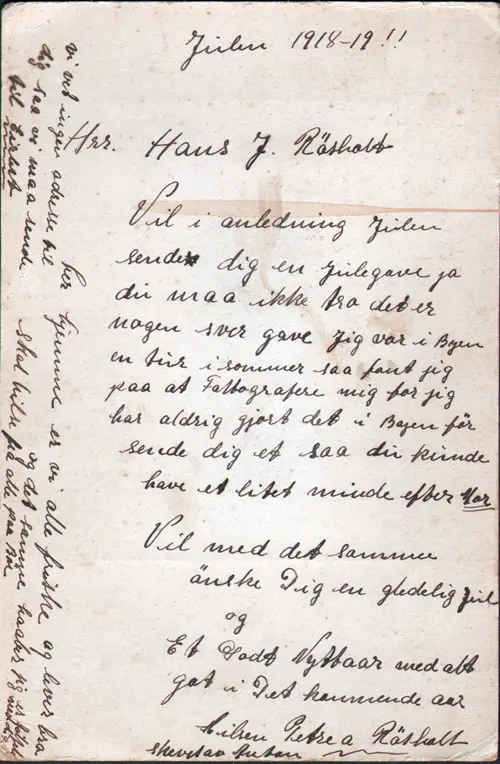 Julen 1918-19!!
Hrr. Hans J. Råsholt
Vil i anledning Julen
sende dig en Julegave ja
du maa ikke tro det er
nogen svær gave Jig var i Byen
en tur i sommer saa fant jig
paa at Fattografere mig for jig
har aldrig gjort det i Byen før
sende dig et saa du kunde
have et litet minde efter Mor
Vil med det samme
ånske Dig en gledelig Jul
og
Et Godt Nyttaar med alt
got i Det kommende aar
Hilsen Petrea Råsholt
skrevet av Anton
Vi vet ingen adrese til
dig saa vi maa sende
til
her hjemme er vi alle friske og lever bra
og det samme haaber jig
Skal hilse fra alle paa